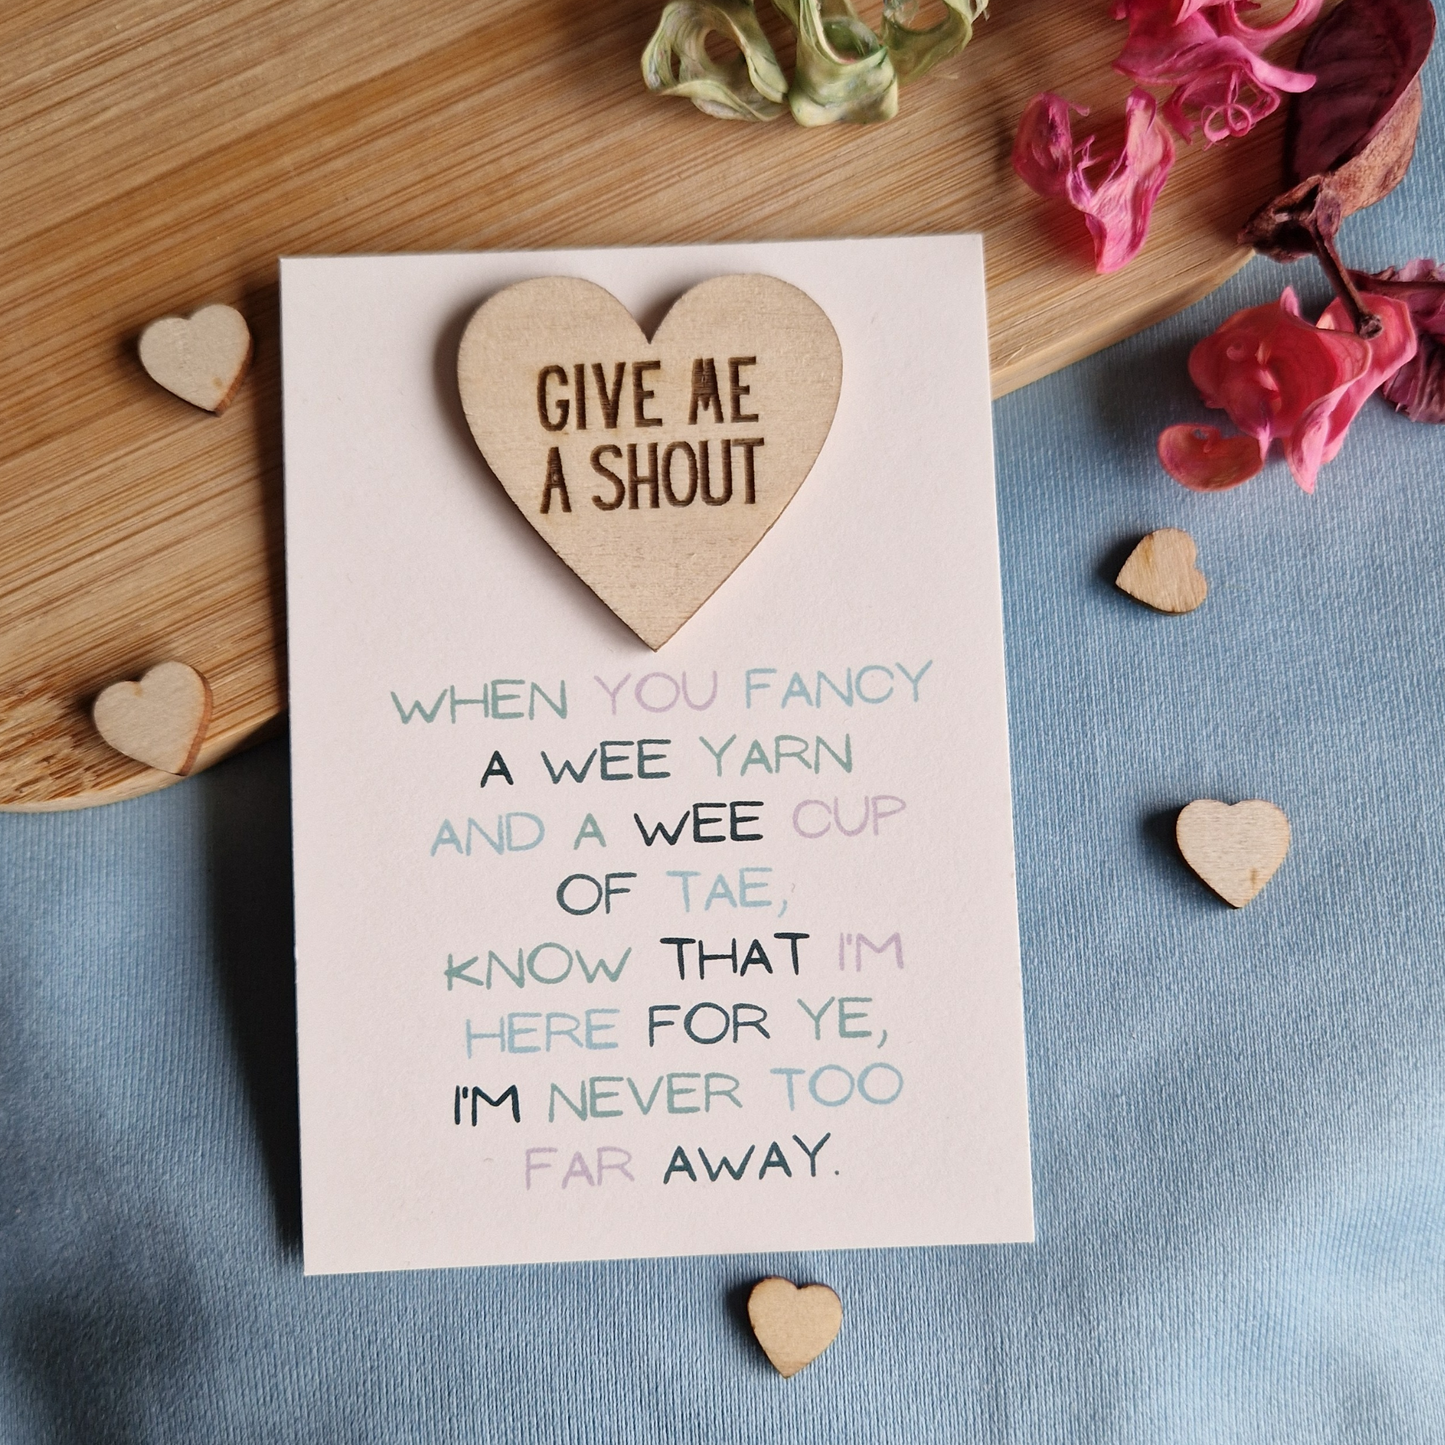 GIVE ME
A SHOUT
WHEN YOU FANCY
A WEE YARN
AND A WEE CUP
OF TAE,
KNOW THAT I'M
HERE FOR YE,
I'M NEVER TOO
FAR AWAY.